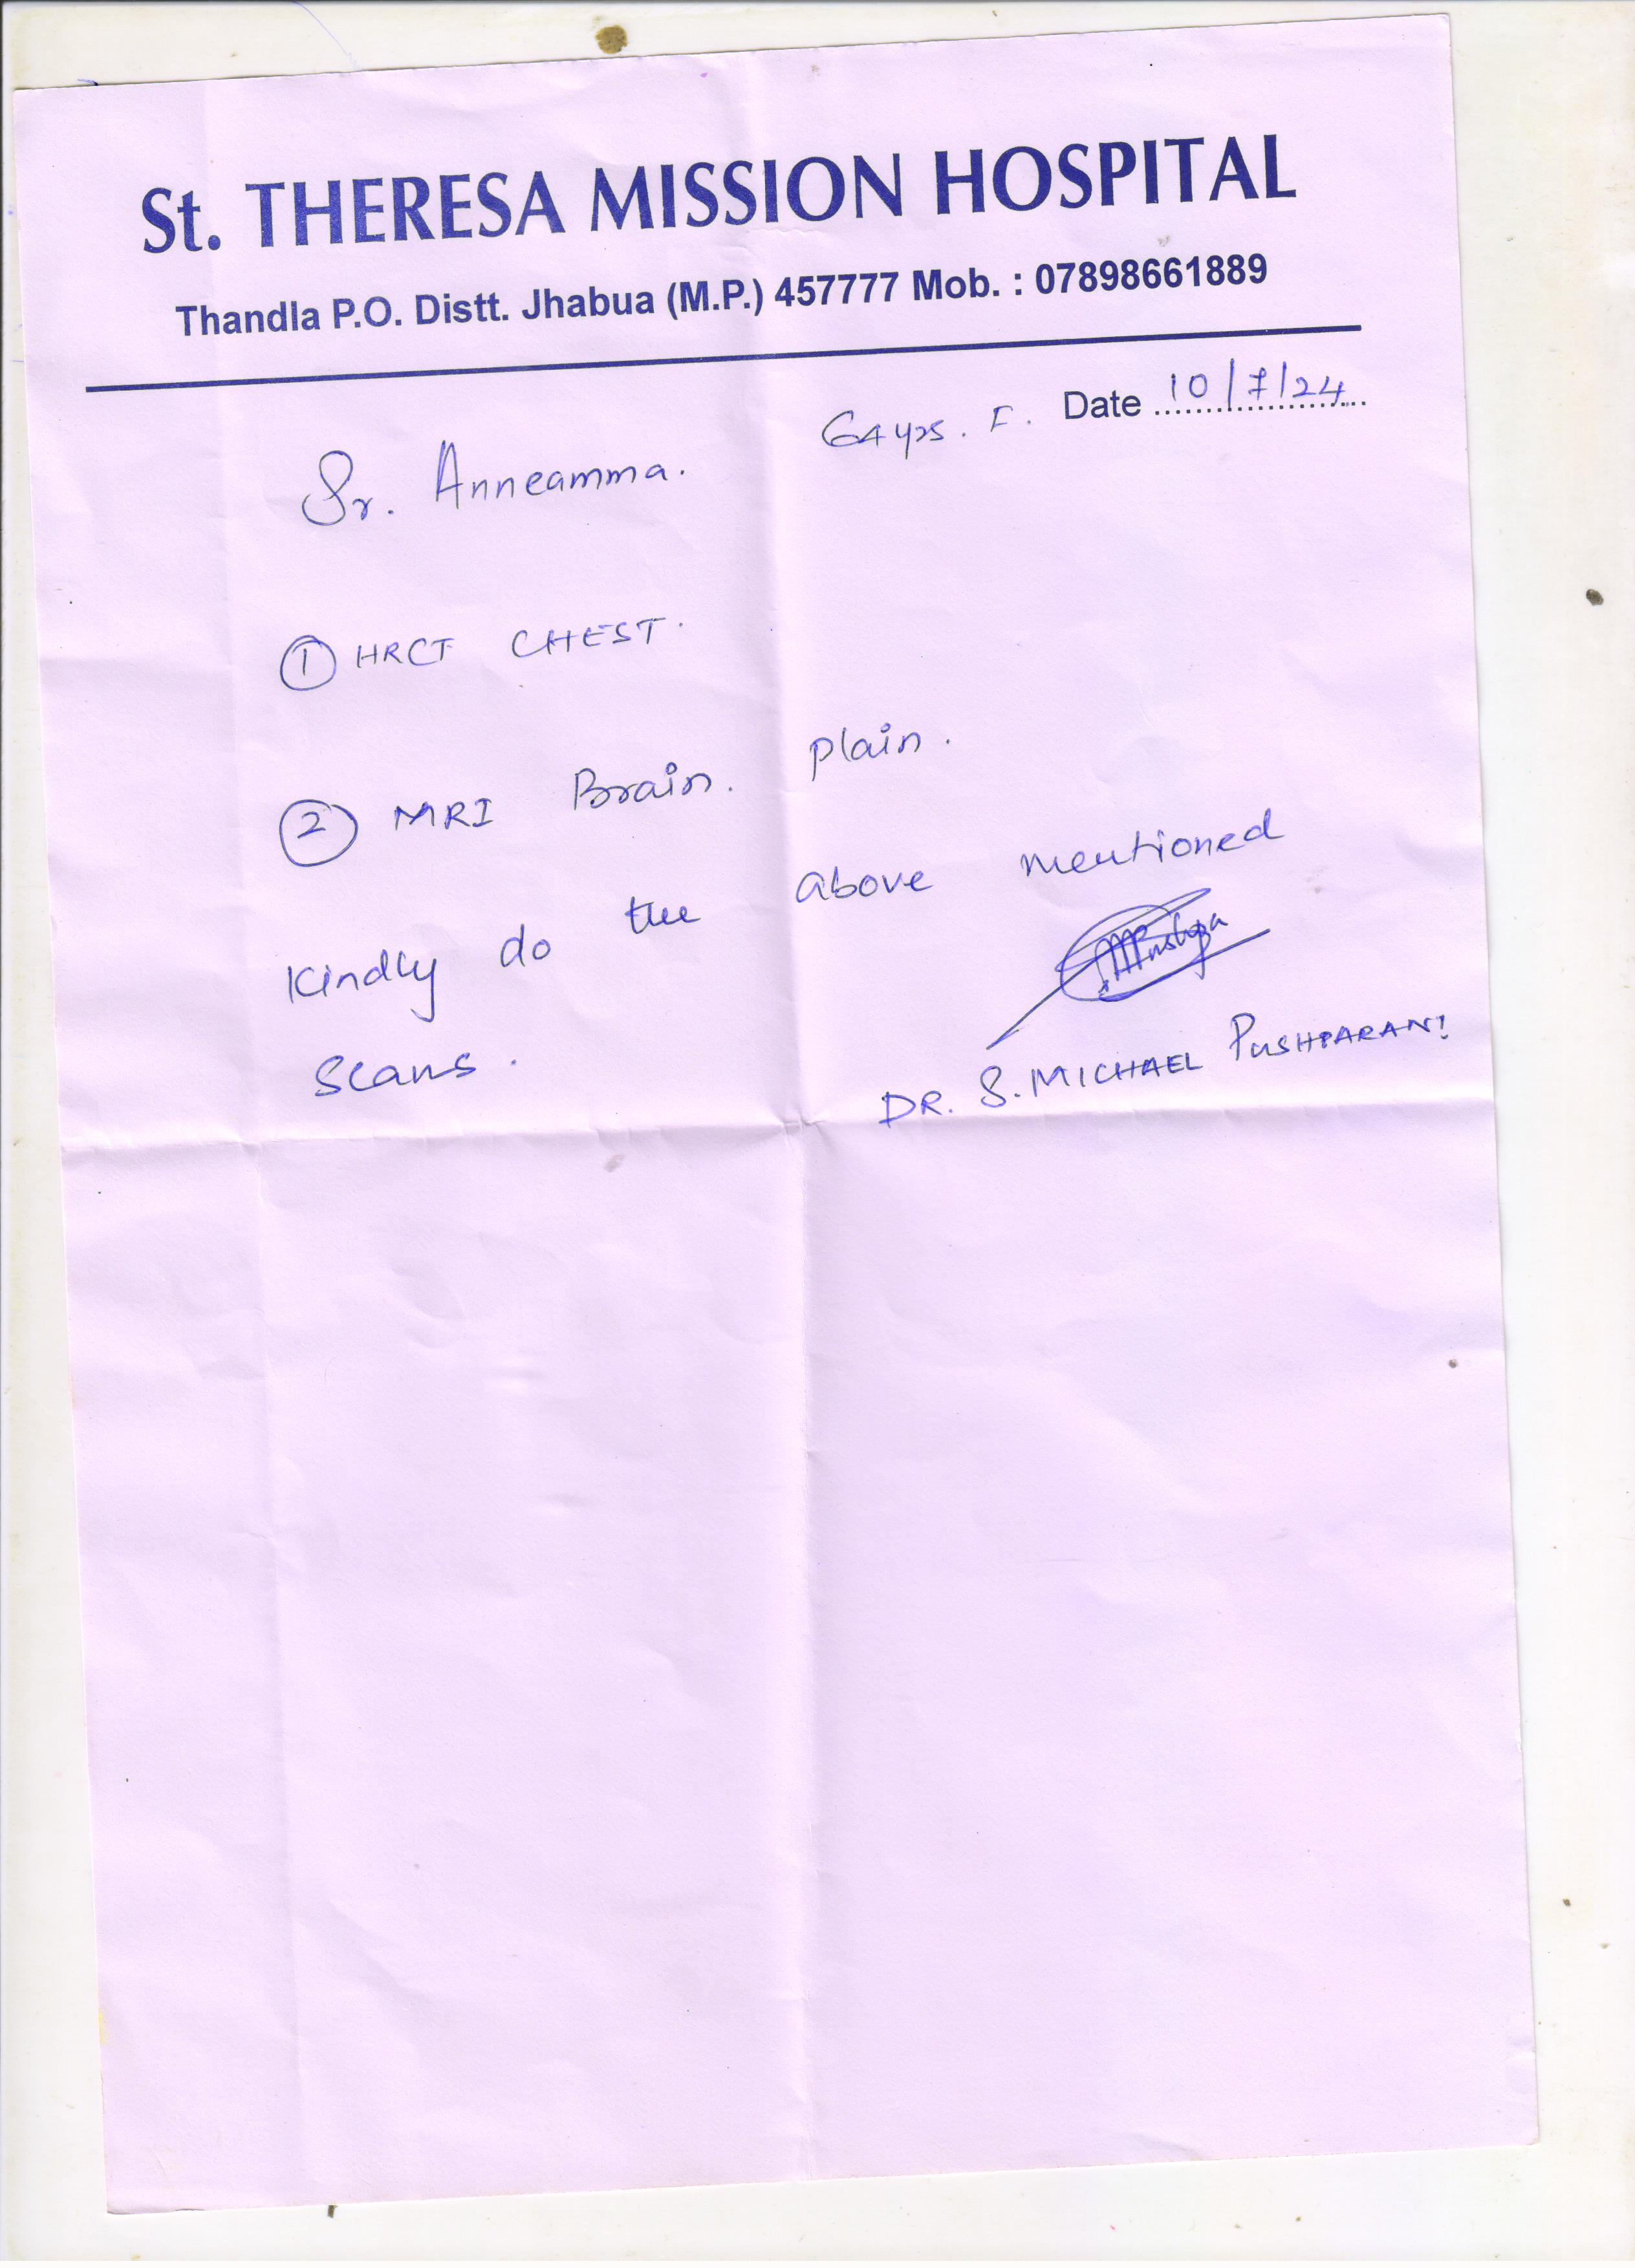 St. THERESA MISSION HOSPITAL
Thandla P.O. Distt. Jhabua (M.P.) 457777 Mob. : 07898661889
Date 10/7/24
Sr. Anneamma. 64 yrs. F.
① HRCT CHEST.
② MRI Brain. plain.
Kindly do the above mentioned
scans.
DR. S. MICHAEL PUSHPARANI